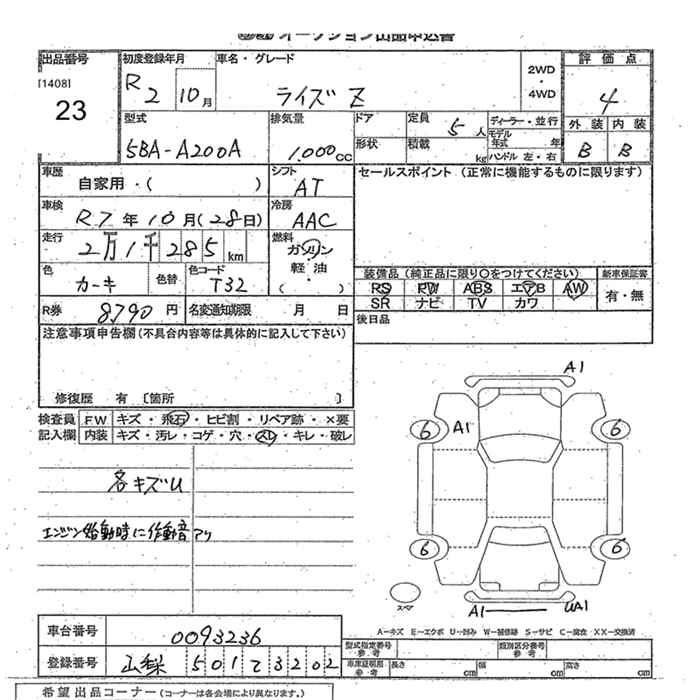 オークション出品申込書
出品番号 初度登録年月 車名・グレード 2WD ・ 4WD 評価点
[1408] 23 R2 10月 ライズ Z 4
型式 排気量 ドア 定員 5人 ディーラー・並行 外装 内装
5BA-A200A 1,000cc 形状 積載 kg モデル年式 年 ハンドル 左・右 B B
車歴 自家用・( ) シフト AT セールスポイント (正常に機能するものに限ります)
車検 R7年10月(28日) 冷房 AAC
走行 2万1千285km 燃料 ガソリン・軽油・( )
色 カーキ 色替 色コード T32 装備品(純正品に限り○をつけてください) 新車保証書
PS PW ABS エアB AW 有・無
SR ナビ TV カワ
R券 8790円 名変通知期限 月 日 後日品
注意事項申告欄(不具合内容等は具体的に記入して下さい)
修復歴 有 〔箇所 〕
検査員記入欄 FW キズ・飛石・ヒビ割・リペア跡・×要
内装 キズ・汚レ・コゲ・穴・スレ・キレ・破レ
A1
6 A1 6
各キズU
エンジン始動時に作動音アリ
6 6
スペア
A1 UA1
A-キズ E-エクボ U-凹み W-補修跡 S-サビ C-腐食 XX-交換済
車台番号 0093236
型式指定番号 参考 類別区分番号 参考
登録番号 山梨 501て3202
車庫証明用 参考 長さ cm 幅 cm 高さ cm
希望出品コーナー(コーナーは各会場により異なります。)